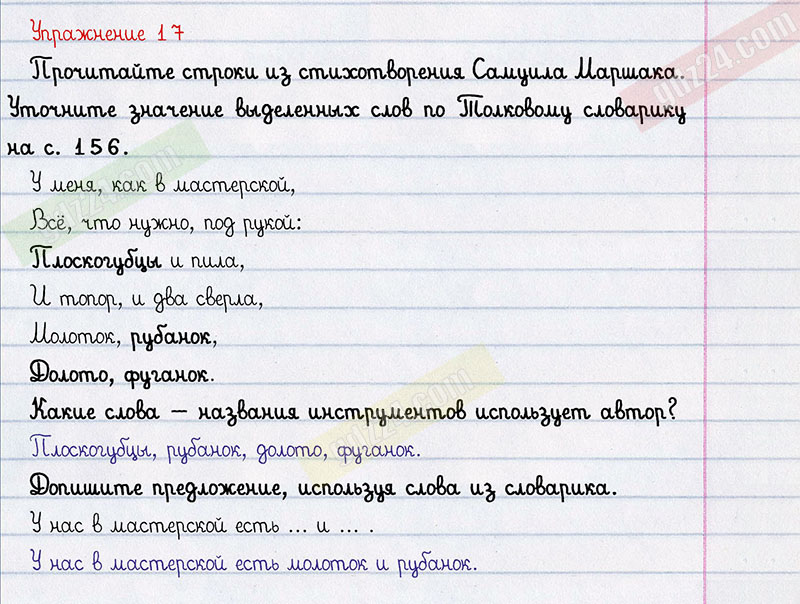 Упражнение 17
Прочитайте строки из стихотворения Самуила Маршака.
Уточните значение выделенных слов по Толковому словарику
на с. 156.
У меня, как в мастерской,
Всё, что нужно, под рукой:
Плоскогубцы и пила,
И топор, и два сверла,
Молоток, рубанок,
Долото, фуганок.
Какие слова – названия инструментов использует автор?
Плоскогубцы, рубанок, долото, фуганок.
Допишите предложение, используя слова из словарика.
У нас в мастерской есть ... и ... .
У нас в мастерской есть молоток и рубанок.
gdz24.com
gdz24.com
gdz24.com